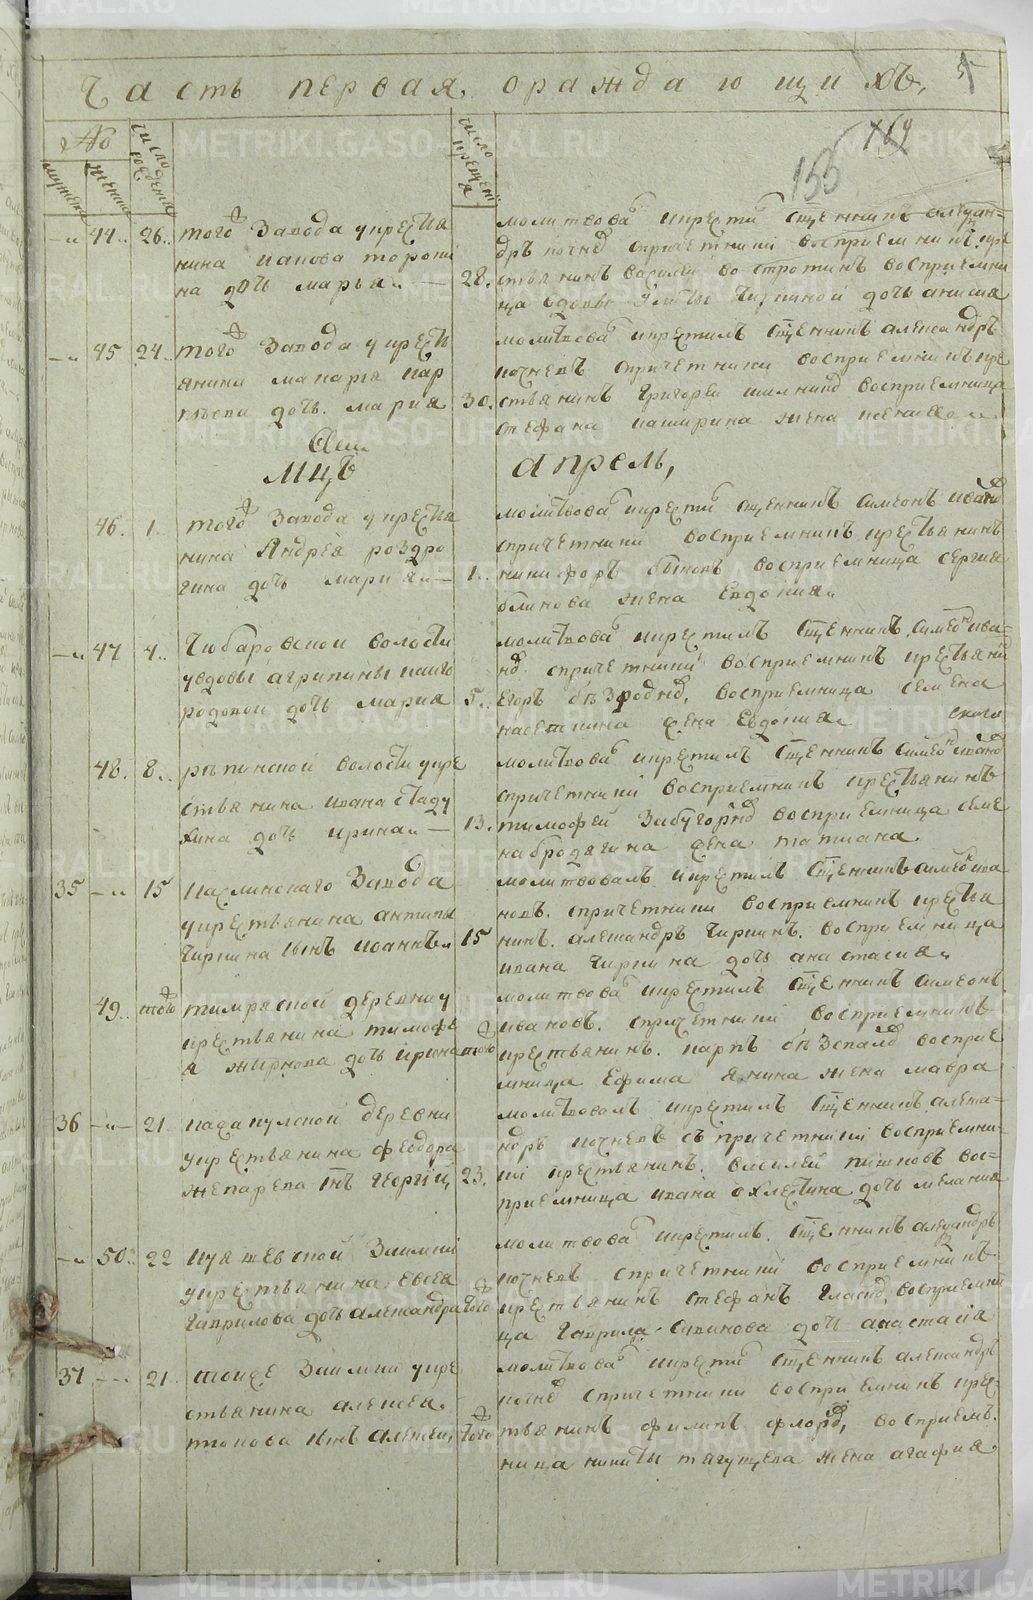 Часть первая, ораждающихъ,
5
169
155
№
мужеска
женска
число рождения
число крещения
44
26
того Завода укрестья
нина
на дочь марья
28
молитвова и крести священникъ алексан-
дръ почнев спричетники восприемникъ кре
стьянинъ василей востротинъ восприемни
ца вдовы дочь анисия
45
24
того Завода укрестья
янина макарья кар
пъева дочь мария
30
молитвова и крестилъ священникъ александръ
почневъ спричетники восприемникъ кре
стьянинъ григорей восприемница
стефана каширина жена ксения
мцъ апрель,
46
1
того Завода укрестья
нина Андрея роздро
гина дочь мария
1
молитвова и крести священникъ симеонъ иванов
спричетники восприемникъ крестьянинъ
никифоръ быковъ восприемница сергия
блинова жена Евдокия
47
4
Чюбаровской волости
увдовы агрипины каиго
родовой дочь мария
5
молитвова и крестилъ священникъ симеон ива
нов спричетники восприемникъ крестьянин
Егоръ безроднов, восприемница семена
жена Евдокия
48
8
репинской волости укре
стьянина ивана стаду
хина дочь ирина
13
молитвова и крестилъ священникъ симеон иванов
спричетники восприемникъ крестьянинъ
тимофей Забугорнов восприемница семе
на бродягина жена татиана
35
15
каслинскаго Завода
укрестьянина антипы
Чиркина сынъ иоаннъ
15
молитвовалъ и крестилъ священникъ симеон ива
новъ спричетники восприемникъ крестья
нинъ александръ Чиркинъ восприемница
ивана Чиркина дочь анастасия
49
того
тимряской деревни у
крестьянина тимофе
я жирнова дочь ирина
того
молитвова и крестилъ священникъ симеонъ
ивановъ спричетники восприемникъ
крестьянинъ карпъ безпалов восприе
мница Ефима янина жена мавра
36
21
деревни
укрестьянина феодора
жепарева сынъ георгий
23
молитвовалъ и крестилъ священникъ алекса-
ндръ почневъ съпричетники восприемни-
къ крестьянинъ василей пшновъ вос-
приемница ивана охлестина дочь мелания
50
22
Заимки
укрестьянина евсея
гаврилова дочь александра
того
молитвова и крестилъ священникъ александръ
почневъ спричетники восприемникъ
крестьянинъ стефанъ восприемни
ца гаврила савинова дочь анастасия
37
21
тойже Заимки укре
стьянина алексея
сынъ алексей
того
молитвова и крести священникъ александръ
почнев спричетники восприемникъ крес-
тьянинъ филипъ флоров, восприем-
ница никиты тягущева жена агафия